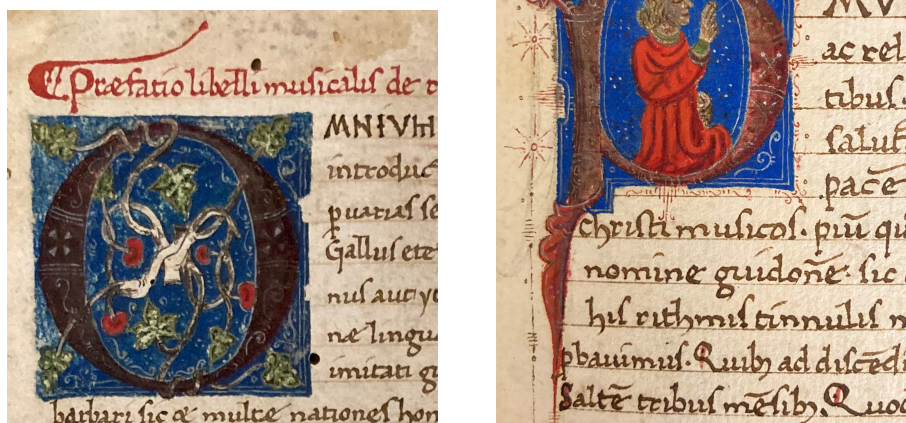 Præfatio libelli musicalis de
MNIVM
introduc
puarias se
Gallus ete
nus aut yt
næ lingu
imitati g
barbari sic & multæ nationes hom
ac rel
tibus.
salut
pacē
christi musicos. piū qu
nomine guidonē. sic
his rithmis tinnulis
pbauimus. Quibȝ ad discēdi
Saltē tribus mēsibȝ. Quod